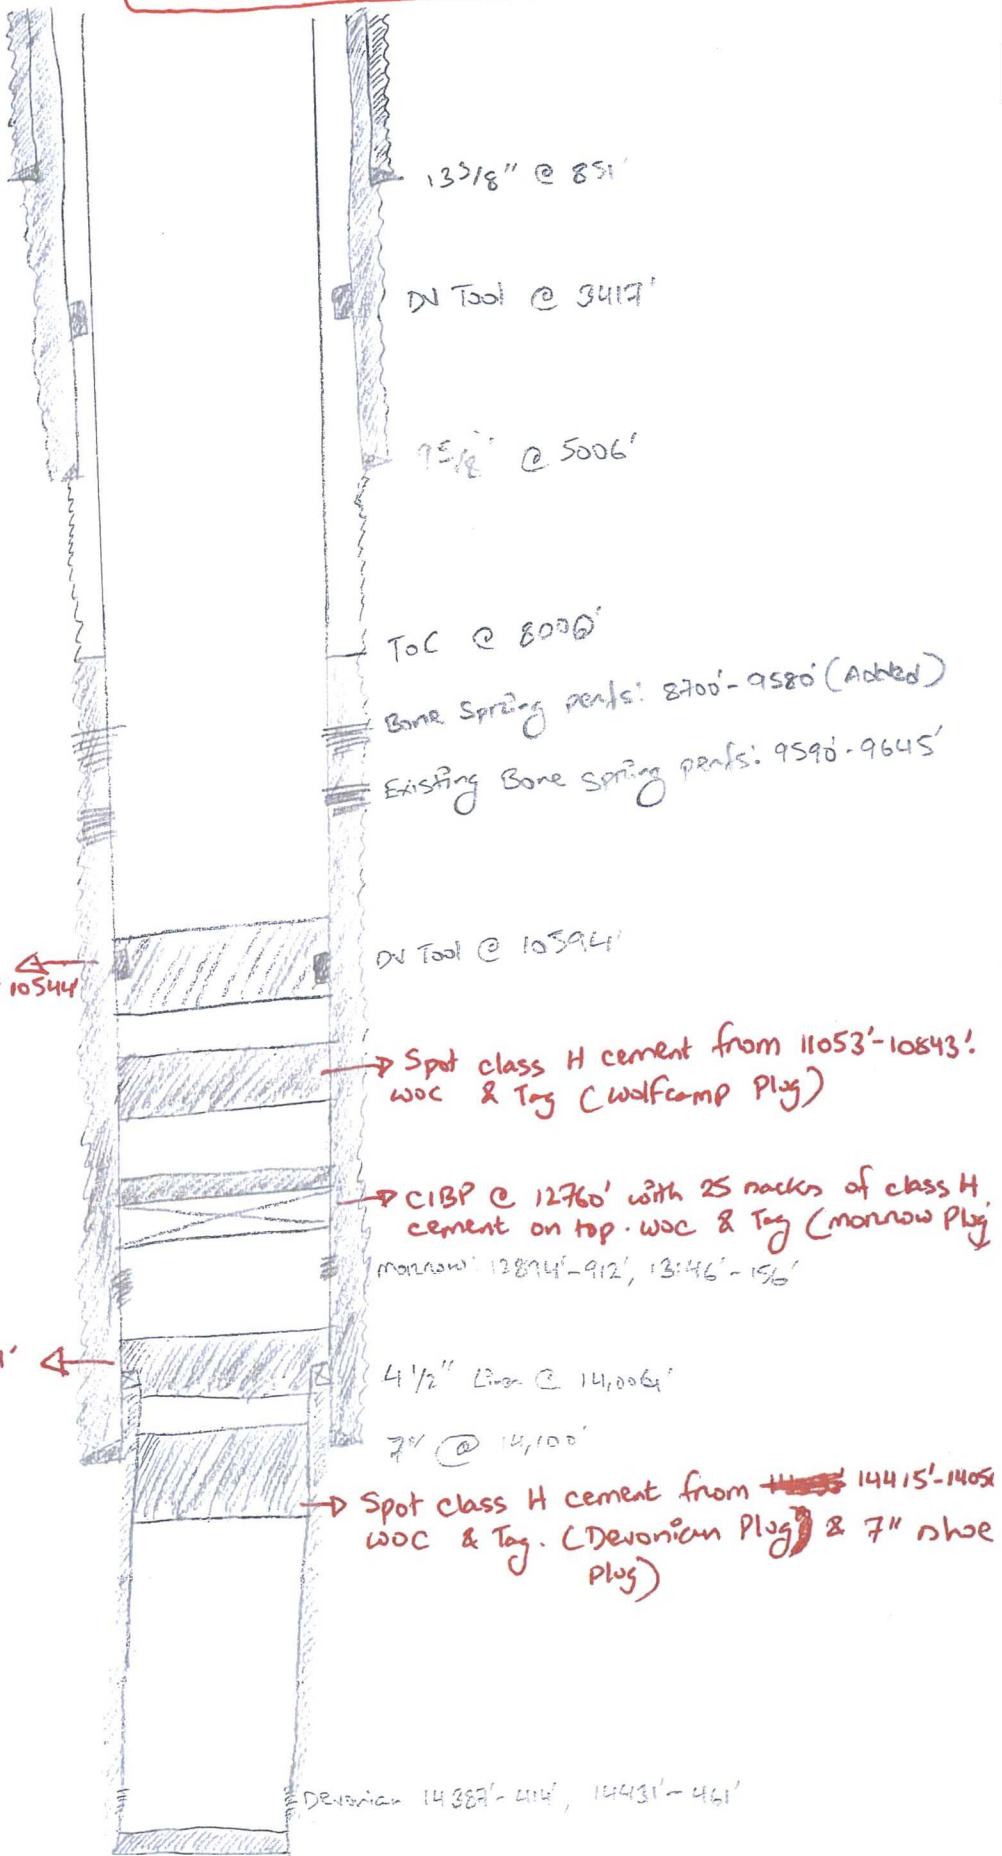 13 3/8" @ 851'
DV Tool @ 3417'
9 5/8" @ 5006'
TOC @ 8000'
Bone Spring perfs: 8700'-9580' (Added)
Existing Bone Spring perfs: 9590'-9645'
DV Tool @ 10594'
10544'
Spot class H cement from 11053'-10843'.
WOC & Tag (Wolfcamp Plug)
CIBP @ 12760' with 25 sacks of class H
cement on top. WOC & Tag (Morrow Plug
Morrow: 12894'-912', 13146'-156'
4 1/2" Liner @
7" @ 14,100'
Spot class H cement from 14415'-1405
WOC & Tag. (Devonian Plug) & 7" shoe
Plug)
Devonian 14387'-414', 14431'-461'